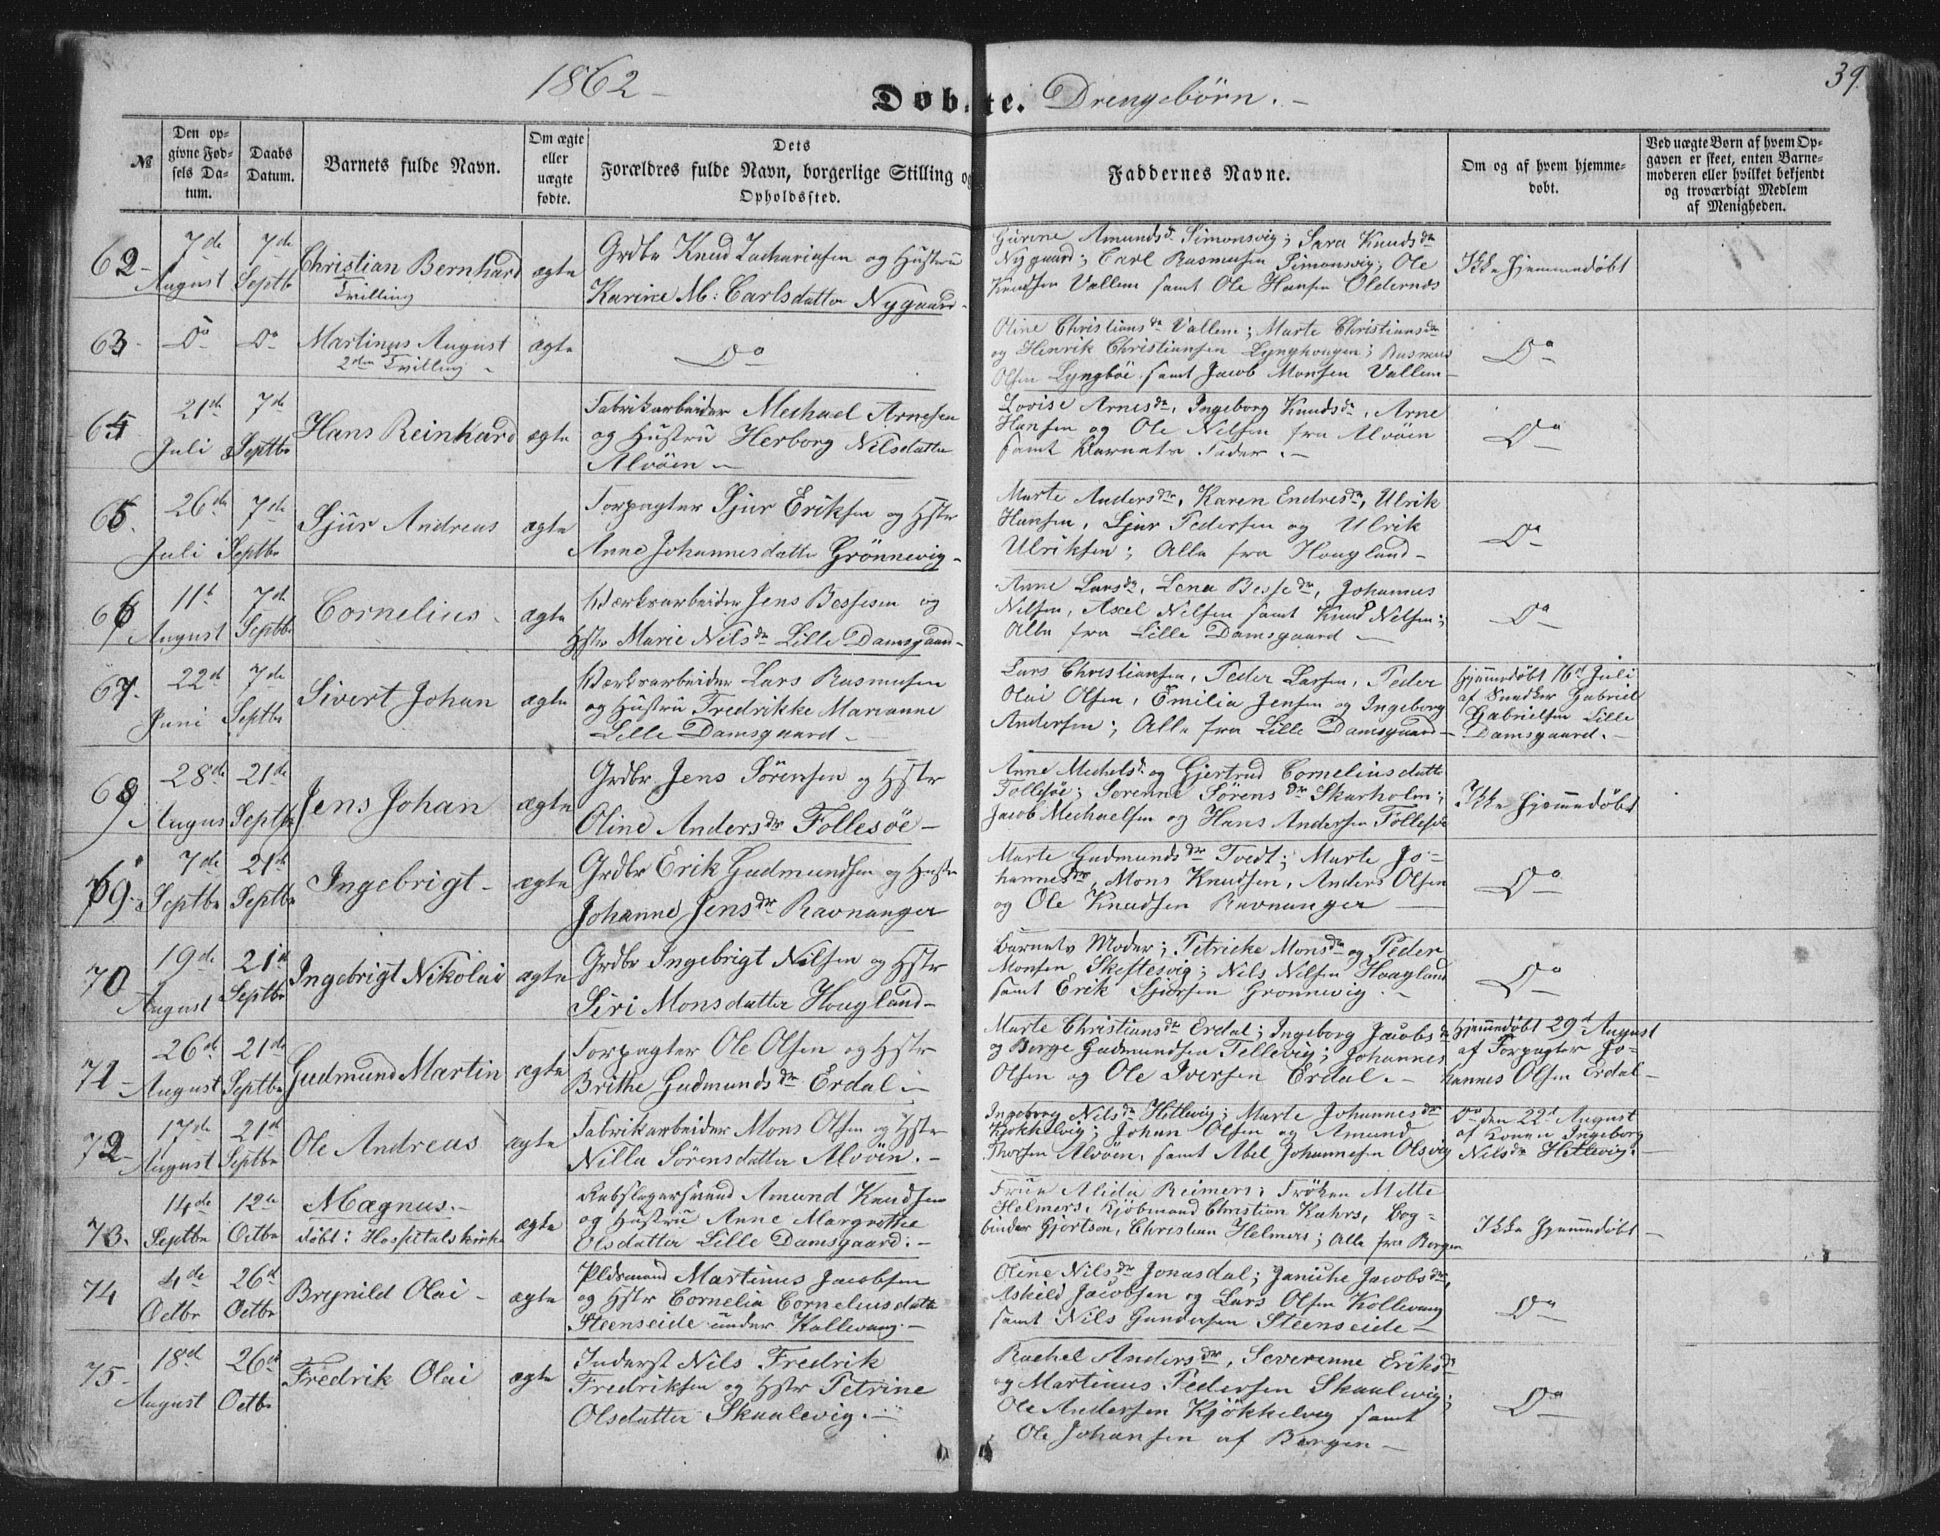 1862 –
Døbte. Drengebørn. –
39.
№
Den opgivne Fødsels Datum.
Daabs Datum.
Barnets fulde Navn.
Om ægte eller uægte fødte.
Dets
Forældres fulde Navn, borgerlige Stilling og
Opholdssted.
Faddernes Navne.
Om og af hvem hjemmedøbt.
Ved uægte Børn af hvem Opgaven er skeet, enten Barnemoderen eller hvilket bekjendt og troværdigt Medlem af Menigheden.
62 –
7de August
7de Septbr
Christian Bernhard
Tvilling
ægte
Grdbr Knud Zachariasen og Hustru
Karine M: Carlsdatter Nygaard –
Gurine Amundsdr Simonsvig; Sara Knudsdr
Nygaard; Carl Rasmusen Simonsvig; Ole
Knudsen Vallem samt Ole Hansen Oldernæs
Ikke Hjemmedøbt
63 –
Do
Do
Martinus August
2den Tvilling –
ægte
Do
Oline Christiansdr Vallem; Marte Christiansdr
og Henrik Christiansen Lynghougen; Rasmus
Olsen Lyngbøe samt Jacob Monsen Vallem –
Do
64
21de Juli
7de Septbr
Hans Reinhard
ægte
Fabrikarbeider Mechael Arnesen
og Hustru Herborg Nilsdatter
Alvøen –
Lovise Arnesdr, Ingeborg Knudsdr, Arne
Hansen og Ole Nelsen fra Alvøen
samt Barnets Fader. –
Do
65.
26de Juli
7de Septbr
Sjur Andreas
ægte
Forpagter Sjur Eriksen og Hstr
Anne Johannesdatter Grönnevig –
Marte Andersdr, Karen Endresdr, Ulrik
Hansen, Sjur Pedersen og Ulrik
Ulriksen; Alle fra Hougland –
Do
66
11te August
7de Septbr
Cornelius –
ægte
Værksarbeider Jens Bessesen og
Hstr Marie Nilsdr Lille Damsgaard –
Anne Larsdr, Lena Bessedr, Johannes
Nelsen, Axel Nelsen samt Knud Nelsen;
Alle fra Lille Damsgaard –
Do
67.
22de Juni
7de Septbr
Sivert Johan
ægte
Værksarbeider Lars Rasmusen
og Hustru Fredrikke Marianne
Lille Damsgaard –
Lars Christiansen, Peder Larsen, Peder
Olai Olsen, Emilia Jensen og Ingeborg
Andersen; Alle fra Lille Damsgaard –
Hjemmedøbt 16d Juli
af Snedker Gabriel
Gabrielsen Lille
Damsgaard. –
68
28de August
21de Septbr
Jens Johan
ægte
Grdbr Jens Sörensen og Hstr
Oline Andersdr Follesöe –
Anne Mechelsdr og Gjertrud Corneliusdatter
Follesøe; Sorenne Sörensdr Skarholm;
Jacob Mechaelsen og Hans Andersen Follesøe
Ikke Hjemmedøbt
69.
7de Septbr
21de Septbr
Ingebrigt –
ægte
Grdbr Erik Gudmundsen og Hustr
Johanne Jensdr Ravnanger
Marte Gudmundsdr Tvedt; Marte Jo-
hannesdr, Mons Knudsen, Anders Olsen
og Ole Knudsen Ravnanger –
Do
70
19de August
21de Septbr
Ingebrigt Nikolai
ægte
Grdbr Ingebrigt Nilsen og Hstr
Siri Monsdatter Hougland –
Barnets Moder; Petricke Monsdr og Peder
Monsen Skeftesvig; Nels Nelsen Hougland
samt Erik Sjursen Gronnevig. –
Do
71 –
26de August
21de Septbr
Gudmund Martin
ægte
Forpagter Ole Olsen og Hstr
Brithe Gudmundsdr Erdal –
Marte Christiansdr Erdal; Ingeborg Jacobsdr
og Børge Gudmundsen Tellevig; Johannes
Olsen og Ole Iversen Erdal. –
Hjemmedøbt 29d August
af Forpagter Jo-
hannes Olsen Erdal –
72 –
17de August
21de Septbr
Ole Andreas
ægte
Fabrikarbeider Mons Olsen og Hstr
Nilla Sörensdatter Alvöen. –
Ingeborg Nelsdr Hetlevig; Marte Johannesdr
Kjøkkelvig; Johan Olsen og Amund
Thorsen Alvöen, samt Abel Johannesen Olsvig
Do den 22d August
af Konen Ingeborg
Nilsdr Hetlevig. –
73.
14de Septbr
12te Octbr
Magnus. –
døbt i Hospitalskirken
ægte
Rebslagersvend Amund Knudsen
og Hustru Anne Margrethe
Olsdatter Lille Damsgaard. –
Frue Alida Reimers; Frøken Mette
Helmers, Kjöbmand Christian Kahrs, Bog-
binder Gjörtsen, Christian Helmers; Alle fra Bergen
Ikke Hjemmedøbt –
74
4de Octbr
26de Octbr
Brynild Olai –
ægte
Pldsmand Martinus Jacobsen
og Hstr Cornelia Corneliusdattr
Steenseide under Kollevaag. –
Oline Nilsdr Jonasdal; Janiche Jacobsdr,
Askild Jacobsen og Lars Olsen Kollevaag
samt Nils Gundersen Steenseide –
Do
75 –
18de August
26de Octbr
Fredrik Olai
ægte
Inderst Nils Fredrik
Fredriksen og Hstr Petrine
Olsdatter Skaalevig. –
Rachel Andersdr, Severenne Eriksdr
og Martinus Pedersen Skaalevig;
Ole Andersen Kjökkelvig samt
Ole Johansen af Bergen –
Do